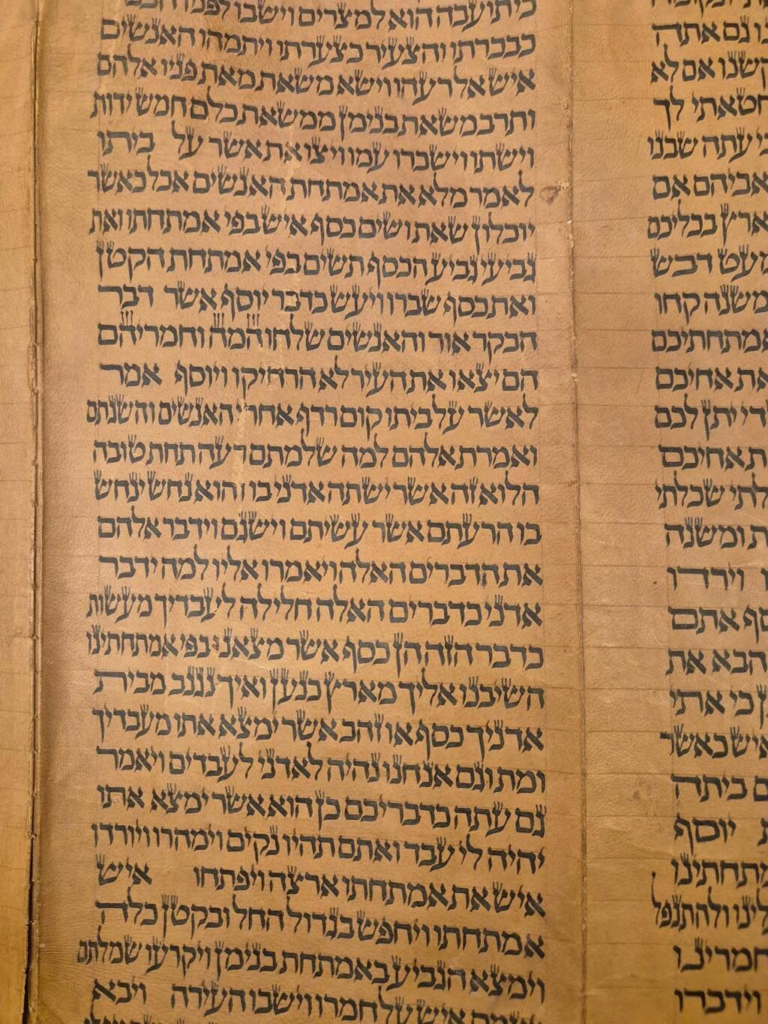 נו גם אתה
קשנו אם לא
חטאתי לך
כי עתה שבנו
אביהם אם
ארץ בכליכם
מעט דבש
משנה קחו
אמתחתיכם
את אחיכם
די יתן לכם
ת אחיכם
לתי שכלתי
ת ומשנה
ו וירדו
סף אתם
הבא את
ן כי אתי
איש כאשר
ם ביתה
ת יוסף
מתחתינו
לינו ולהתנפל
חמרינו
וידברו
כי תועבה הוא למצרים וישבו לפניו הבכר
כבכרתו והצעיר כצערתו ויתמהו האנשים
איש אל רעהו וישא משאת מאת פניו אלהם
ותרב משאת בנימן ממשאת כלם חמש ידות
וישתו וישכרו עמו ויצו את אשר על ביתו
לאמר מלא את אמתחת האנשים אכל כאשר
יוכלון שאת ושים כסף איש בפי אמתחתו ואת
גביעי גביע הכסף תשים בפי אמתחת הקטן
ואת כסף שברו ויעש כדבר יוסף אשר דבר
הבקר אור והאנשים שלחו המה וחמריהם
הם יצאו את העיר לא הרחיקו ויוסף אמר
לאשר על ביתו קום רדף אחרי האנשים והשגתם
ואמרת אלהם למה שלמתם רעה תחת טובה
הלוא זה אשר ישתה אדני בו והוא נחש ינחש
בו הרעתם אשר עשיתם וישגם וידבר אלהם
את הדברים האלה ויאמרו אליו למה ידבר
אדני כדברים האלה חלילה לעבדיך מעשות
כדבר הזה הן כסף אשר מצאנו בפי אמתחתינו
השיבנו אליך מארץ כנען ואיך נגנב מבית
אדניך כסף או זהב אשר ימצא אתו מעבדיך
ומת וגם אנחנו נהיה לאדני לעבדים ויאמר
גם עתה כדבריכם כן הוא אשר ימצא אתו
יהיה לי עבד ואתם תהיו נקים וימהרו ויורדו
איש את אמתחתו ארצה ויפתחו איש
אמתחתו ויחפש בגדול החל ובקטן כלה
וימצא הגביע באמתחת בנימן ויקרעו שמלתם
ויעמס איש על חמרו וישבו העירה ויבא